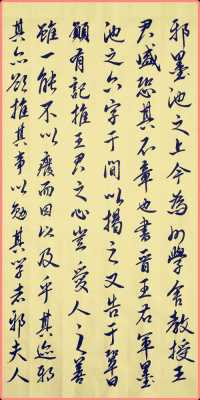 邪墨池之上今為州學舍教授王
君盛恐其不章也書晉王右軍墨
池之六字于間以揭之又告于鞏曰
願有記推王君之心豈愛人之善
雖一能不以廢而因以及乎其迹邪
其亦欲推其事以勉其学者邪夫人